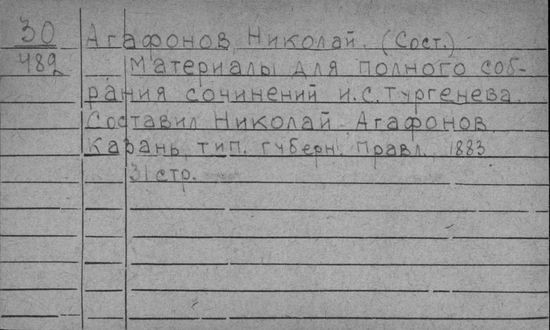 30
489
Агафонов, Николай. (Сост.)
Материалы для полного соб-
рания сочинений И.С. Тургенева.
Составил Николай Агафонов.
Казань, тип. губерн. правл., 1883.
31 стр.